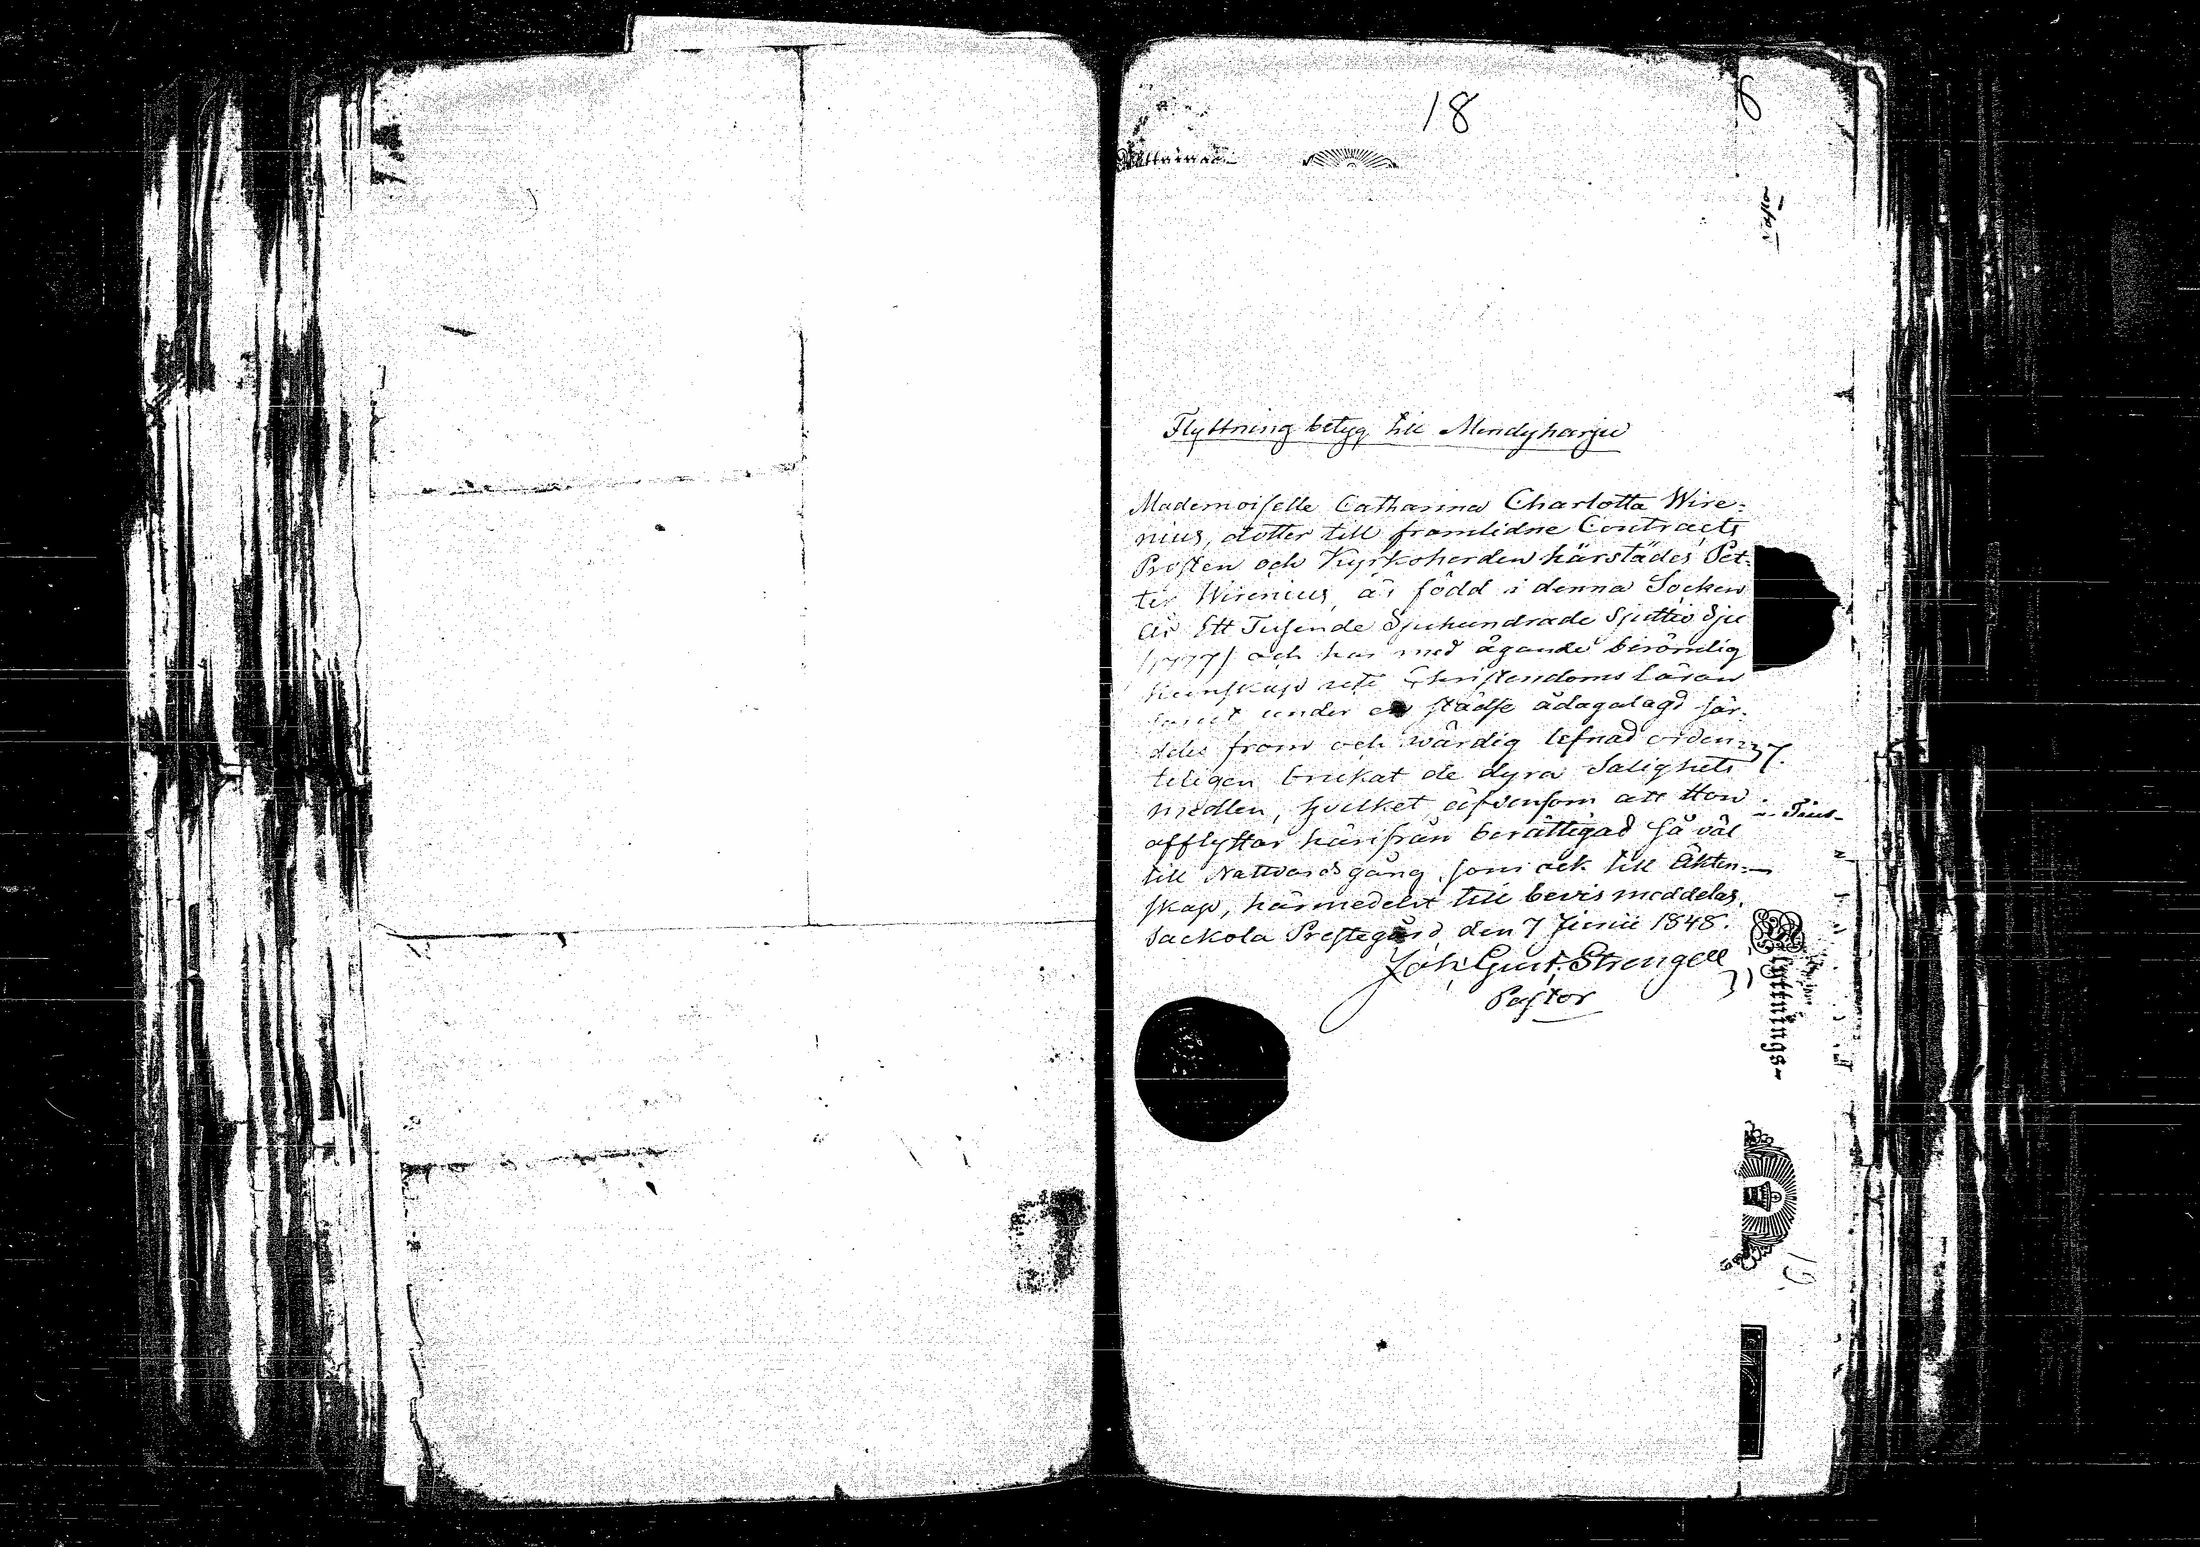 18
Flyttning betyg till Mendyharju
Mademoiselle Catharina Charlotta Wire=
nius, dotter till framlidne Contracts
Prosten och Kyrkoherden härstädes Pet=
ter Wirenius, är född i denna Socken
år Ett Tusende Sjuhundrade Sjuttio Sju
/1777/ och har med ägande berömlig
kunskap uti Christendoms läran
samt under en städse ådagalagd
from och wärdig lefnad orden=
teligen brukat de dyra Salighets
medlen, hvilket äfvensom att Hon
afflyttar härifrån berättigad så väl
till Nattvardsgång som ock till Äkten=
skap, härmedelst till bevis meddelas.
Sackola Prestegård den 7 Junii 1848.
Joh. Gust. Strengell
Pastor
Flyttnings-
19